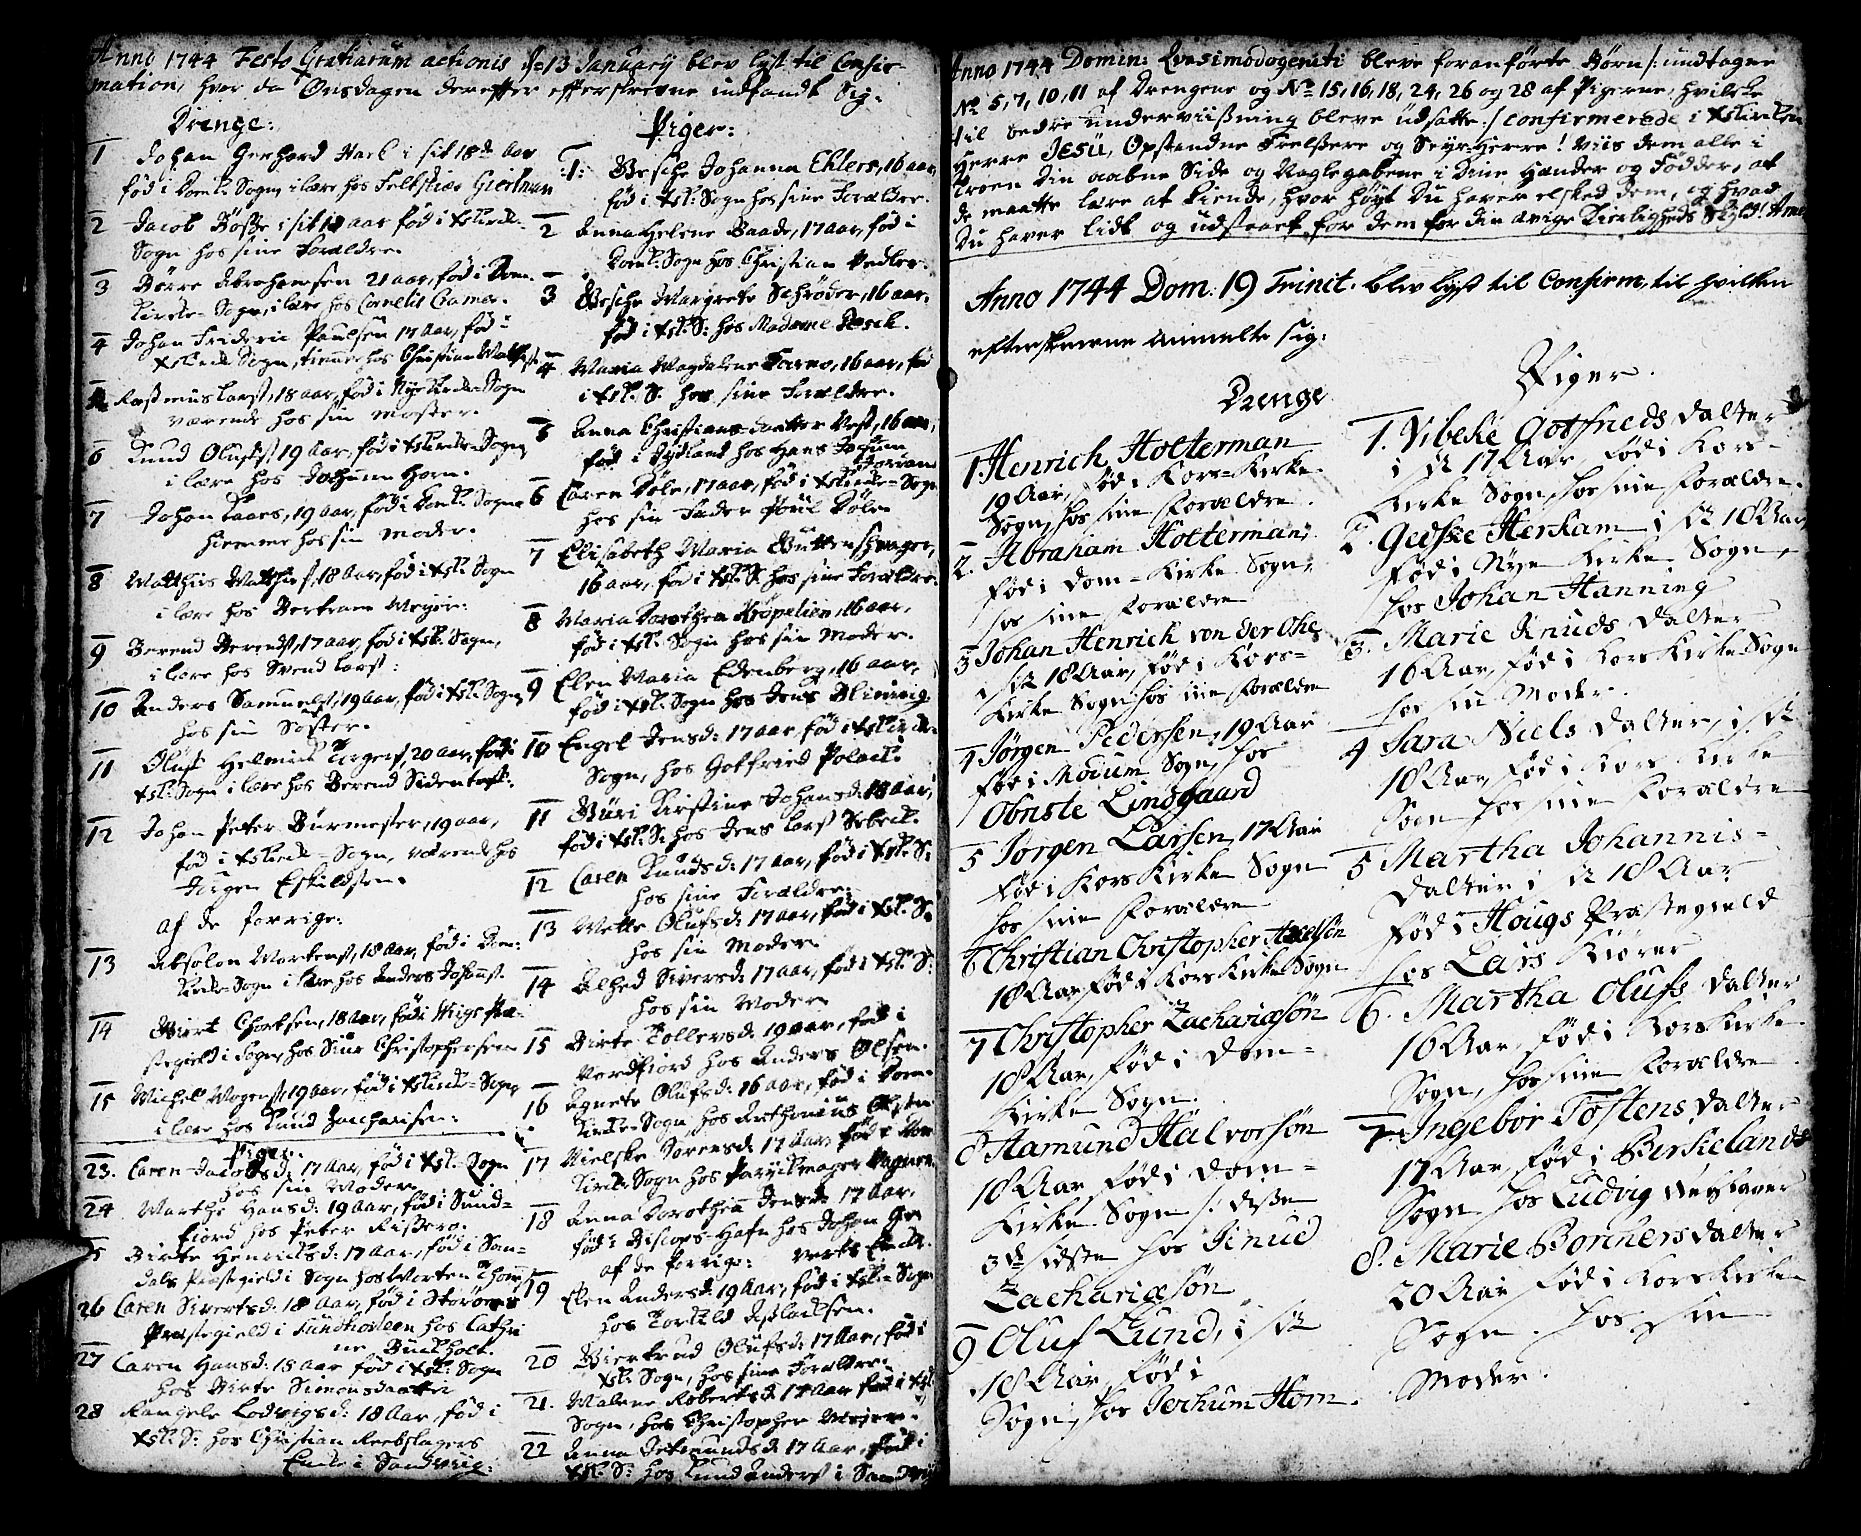 Anno 1744 Festo Gratiarum actionis d: 13 Januarij blev lyst til Confir-
mation, hvor da Onsdagen derefter efterskrevne indfandt sig:
Drenge:
1 Johan Gerhard Harl i sit 18de Aar
fød i Domk: Sogn, i lære hos
2 Jacob i sit Aar fød i xkirk-
Sogn hos sine Forældre.
3 Børre Abrahamsen 21 aar, fød i Dom-
Kirke-Sogn, i lære hos Cornelis Cramer.
4 Johan Frideric Paulsen 17 Aar, fød i
xkirk Sogn, tienende hos Christian
Rasmus Larss, 18 aar, fød i Nye Kirke-Sogn
værende hos sin Moster.
6 Knud Olufss, 19 Aar, fød i xkirke-Sogn
i lære hos Jochum Horn.
7 Johan Kaars, 19 Aar, fød i Domk: Sogn
hiemme hos sin Moder.
8 Matthias Matthiess, 18 Aar, fød i xk: Sogn
i lære hos Bertram Meyer.
9 Berend Berendss, 17 aar, fød i xk: Sogn,
i lære hos Svend Larss:
10 Anders Samuelss, 19 Aar, fød i xk: Sogn
hos sin Søster.
11 Oluf Helmich Torgerss, 20 aar, fød i
xk: Sogn i lære hos Berend Sidentopf:
12 Johan Peter Burmester, 19 aar,
fød i xkirk-Sogn, værende hos
Jørgen Eskildsen.
af de forrige:
13 Absolon Mortenss, 18 Aar, fød i Dom:
Kirke-Sogn i lære hos Anders Johanss.
14 18 Aar, fød i Præ-
stegield i Sogn, hos Siur Christophersen
15 Michel Mogenss, 19 aar, fød i xkirk-Sogn
i lære hos Knud Zachariasen:
Piger:
23. Caren Jacobsd: 17 Aar, fød i xk: Sogn
hos sin Moder.
24 Marthe Hansd: 19 aar, fød i Sund-
fiord hos Peter Risbro.
5 Birte Henrichsd: 17 Aar, fød i Son-
dals Præstegield i Sogn hos Morten Thomss
26 Caren Sivertsd: 18 Aar, fød i Storøens
Præstegield i Sundhorleen hos Cathri
ne Buckholt.
27 Caren Hansd: 18 aar fød i xk: Sogn
hos Birte Simonsdaatter
28 Rangele Lodvigsd: 18 Aar, fød i
xk: S: hos Christian Reebslagers
Enke i Sandvig:
Piger:
1: Gesche Johanna Ehlers, 16 aar,
fød i xk: Sogn hos sine Forældre.
2 Anna Helene Baade, 17 aar, fød i
Domk: Sogn hos Christian Pedler.
3 Gesche Margrete Schrøder, 16 aar,
fød i xk: S: hos Madame Desch.
4 Maria Magdalena 16 aar, fød
i xk: S. hos sine Forældre.
5 Anna Christians-daatter Vest, 16 aar,
fød i Jydland hos Hans Jochum
6 Caren Døle, 17 aar, fød i xkirke-Sogn
hos sin Fader Poul Døle
7 Elisabeth Maria Buttenschager,
16 aar, fød i xk: S. hos sine Forældre.
8 Maria Dorothea Krøpelien, 16 aar,
fød i xk: Sogn hos sin Moder.
9 Elen Maria Edenberg, 16 aar,
fød i xk: Sogn hos Jens
10 Engel Jensd: 17 aar, fød i xkirke-
Sogn, hos Gotfried Polack.
11 Kirstine Johansd: 18 Aar,
fød i xk: S. hos Jens Larss
12 Caren Knudsd: 17 aar, fød i xk: S:
hos sine Forældre:
13 Mette Olufsd: 17 aar, fød i xk: S:
hos sin Moder.
14 Alhed Siversd: 17 aar, fød i xk: S:
hos sin Moder
15 Birte Tollevsd: 19 aar, fød i
Nordfiord hos Anders Olsen.
16 Agnete Olufsd: 16 aar, fød i Dom-
Kirke-Sogn hos Anthonius Olsen.
17 Nielske Sørensd: 17 Aar, fød i Dom
Kirke-Sogn hos
18 Anna Dorothea Jensd: 17 Aar,
fød i Biscops-Hafn hos Johan
af de forrige:
19 Elen Andersd: 19 Aar, fød i xk: Sogn
hos Torkild
20 Giertrud Olufsd: 17 Aar, fød i
xk: Sogn, hos sine Forældre.
21. Malene Robertsd: 17 Aar fød i xk:
Sogn, hos Christopher Meyer.
22 Anna Detmundsd: 17 Aar, fød i
xk: S: hos Knud Anderss i Sandvig
Anno 1744 Domin: Qvasimodogeniti bleve foranførte Børn /: undtagne
No 5, 7, 10, 11 af Drengene og No 15, 16, 18, 24, 26 og 28 af Pigerne, hvilke
til bedre underviisning bleve udsatte :/ confirmerede i xkirken
Herre Jesu, Opstandne Frelsere og Seyr-Herre! Viis dem alle i
Troen din aabne Side og Naglegabene i Dine Hænder og Fødder, at
de maatte lære at kiende, hvor høyt Du haver elsked dem, og hvad
Du haver lidt og udstaaet for dem for din ævige Kierligheds Skyld! Amen
Anno 1744 Dom: 19 Trinit. blev lyst til Confirm, til hvilken
efterskrevne anmelte sig:
Drenge
1. Henrich Holterman
19 Aar, fød i Kors-Kirke
Sogn, hos sine Forældre.
2. Abraham Holterman,
fød i Dom-Kirke Sogn,
hos sine Forældre
3 Johan Henrich von der Ohe
i sit 18 Aar, fød i Kors-
Kirke Sogn hos sine Forældre
4 Jørgen Pedersen, 19 Aar
fød i Modum Sogn, hos
Obriste Lindgaard
5 Jørgen Larsen, 17 Aar
fød i Kors Kirke Sogn
hos sine Forældre
6 Christian Christopher Axelsøn
18 Aar fød i Kors Kirke Sogn
7 Christopher Zachariæsøn
18 Aar, fød i Dom-
Kirke Sogn.
8 Hamund Halvorsøn
18 Aar fød i Dom-
Kirke Sogn /: disse
3de sidste hos Knud
Zachariæsøn
9 Oluf Lund, i sit
18 Aar, fød i
Sogn, hos Jochum Horn.
Piger.
1. Vibeke Gotfrieds Datter
i sit 17 Aar, fød i Kors-
Kirke Sogn, hos sine Forældre.
2. Gedske Herkam i sit 18 Aar,
fød i Nye Kirke Sogn,
hos Johan Hanning
3. Marie Knuds Datter
16 Aar, fød i Kors Kirke Sogn
hos sin Moder.
4 Sara Niels Datter, i sit
18 Aar, fød i Kors Kirke
Sogn hos sine Forældre
5 Martha Johannis-
Datter i sit 18 Aar
fød i Hougs Præstegield
hos Lars Kiører
6. Martha Olufs Datter
16 Aar, fød i Kors Kirke
Sogn, hos sine Forældre
7. Ingebor Tostens Datter
17 Aar, fød i Birkelands
Sogn hos Ludvig
8. Marie Borthers Datter
20 Aar fød i Kors Kirke
Sogn. hos sin
Moder.